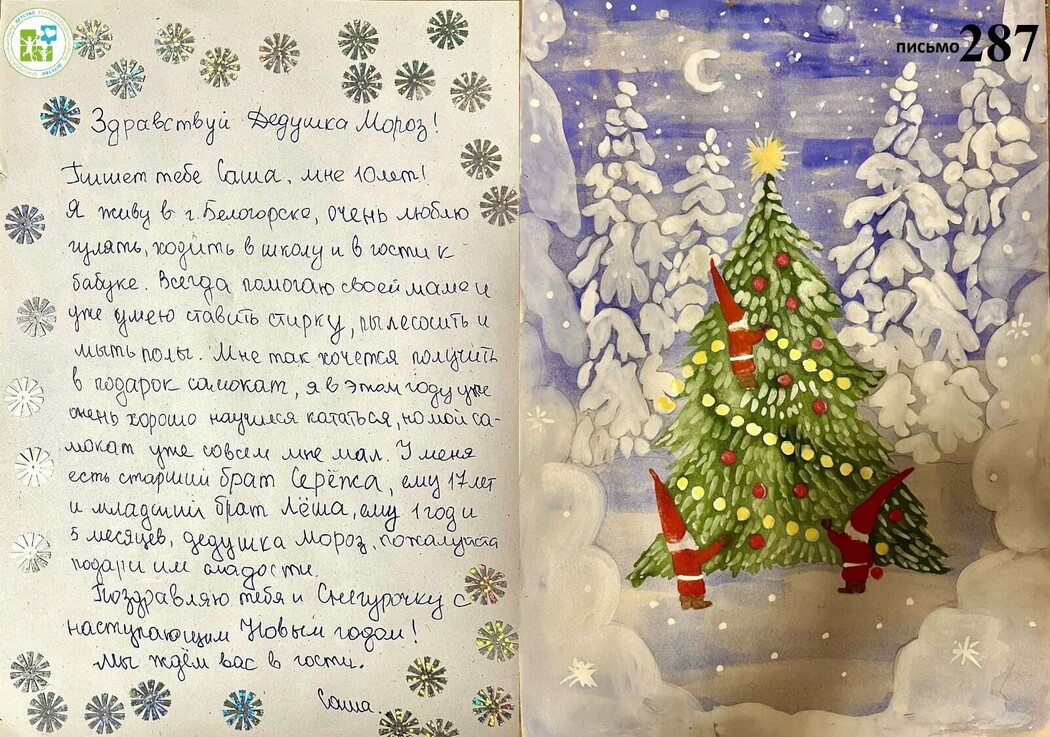 Здравствуй Дедушка Мороз!
Пишет тебе Саша, мне 10 лет!
Я живу в г. Белогорске, очень люблю
гулять, ходить в школу и в гости к
бабуке. Всегда помогаю своей маме и
уже умею ставить стирку, пылесосить и
мыть полы. Мне так хочется получить
в подарок самокат, я в этом году уже
очень хорошо научился кататься, но мой са-
мокат уже совсем мне мал. У меня
есть старший брат Серёжа, ему 17 лет
и младший брат Лёша, ему 1 год и
5 месяцев, дедушка Мороз, пожалуйста
подари им сладости.
Поздравляю тебя и Снегурочку с
наступающим Новым годом!
Мы ждём вас в гости.
Саша.
письмо 287